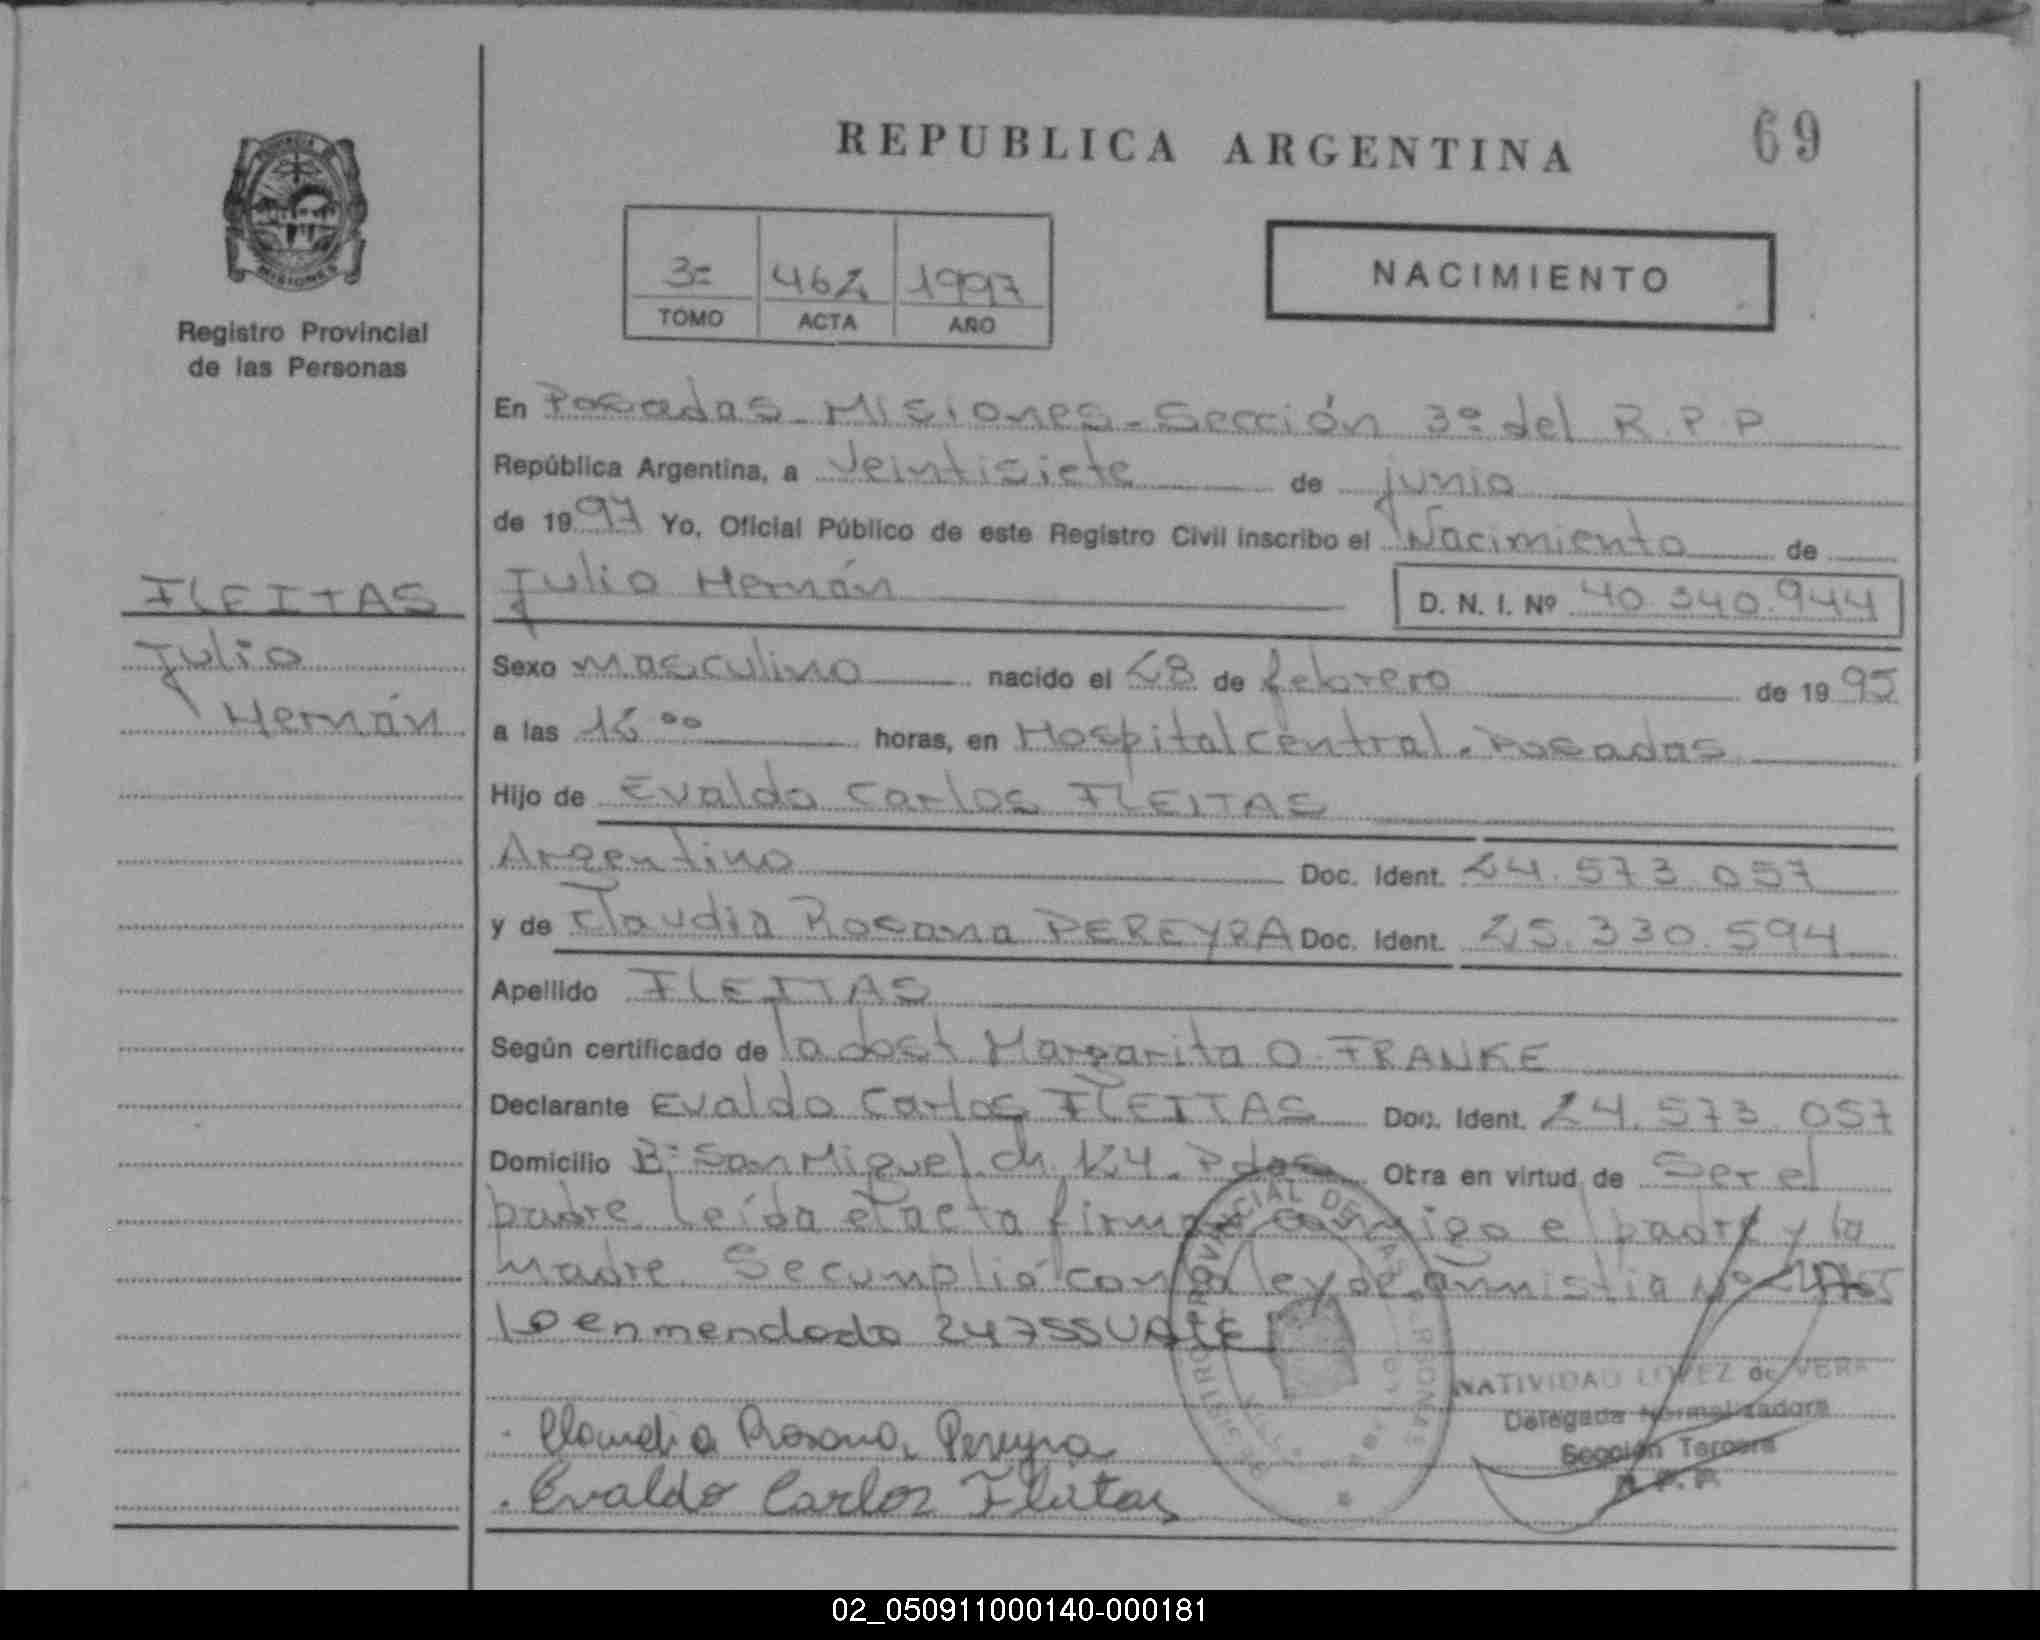 REPUBLICA ARGENTINA
69
MISIONES
Registro Provincial
de las Personas
3º 462 1997
TOMO ACTA AÑO
NACIMIENTO
En Posadas - Misiones - Sección 3º del R.P.P
República Argentina, a veintisiete de junio
de 1997 Yo, Oficial Público de este Registro Civil inscribo el Nacimiento de
Julio Hernán D. N. I. Nº 40.340.944
FLEITAS
Julio
Hernán
Sexo masculino nacido el 28 de febrero de 1995
a las 16 00 horas, en Hospital central. Posadas
Hijo de Evaldo Carlos FLEITAS
Argentino Doc. Ident. 24.573.057
y de Claudia Rosana PEREYRA Doc. Ident. 25.330.594
Apellido FLEITAS
Según certificado de la obst Margarita O. FRANKE
Declarante Evaldo Carlos FLEITAS Doc. Ident. 24.573.057
Domicilio Bº San Miguel ch. 124. Pdas Obra en virtud de Ser el
padre. Leída el acta firman conmigo el padre y la
madre. Se cumplió con la ley de amnistia Nº
Lo enmendado 24755 VALE
NATIVIDAD LOPEZ de VERA
Delegada Normalizadora
Sección Tercera
R.P.P.
Claudia Rosana Pereyra
Evaldo Carlos Fleitas
02_050911000140-000181